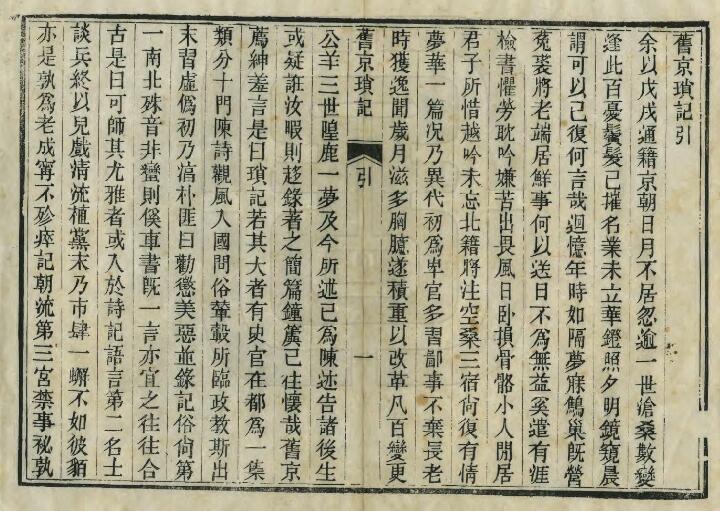 舊京瑣記引
余以戊戌通籍京朝日月不居忽逾一世滄桑數變
逢此百憂鬢髮已摧名業未立華鐙照夕明鏡窺晨
謂可以已復何言哉迴憶年時如隔夢寐鷦巢旣營
菟裘將老端居鮮事何以送日不爲無益奚遣有涯
檢書懼勞耽吟嫌苦出畏風日卧損骨骼小人閒居
君子所惜越吟未忘北籍將注空桑三宿尙復有情
夢華一篇況乃異代初爲卑官多習鄙事不棄長老
時獲逸聞歲月滋多胸臆遂積重以改革凡百變更
舊京瑣記
引
一
公羊三世隍鹿一夢及今所述已爲陳迹告諸後生
或疑誑汝暇則迻錄著之簡篇鐘簴已往懷哉舊京
薦紳羞言是曰瑣記若其大者有史官在都爲一集
類分十門陳詩觀風入國問俗輦轂所臨政教斯出
末習虛僞初乃滈朴匪曰勸懲美惡並錄記俗尙第
一南北殊音非蠻則傒車書旣一言亦宜之往往合
古是曰可師其尤雅者或入於詩記語言第二名士
談兵終以兒戲淸流植黨末乃市肆一蠏不如彼貊
亦是孰爲老成寧不殄瘁記朝流第三宮禁事祕孰